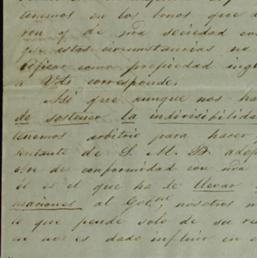 tenemos en los bonos que a
ron y de una sociedad en
que estas circunstancias no
tificar como propiedad ingl
a Vds corresponde.
Asi que aunque nos ha
de sostener la indivisibilida
tenemos arbitrio para hacer
sentante de S. M. B. adop
cion de conformidad con una
el es el que ha de llevar
maciones al Gobno; nosotros n
o que pende solo de su re
nos es dado influir en